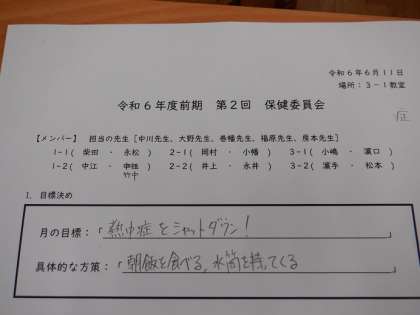 令和6年6月11日
場所：3-1教室
令和6年度前期　第2回　保健委員会
症
【メンバー】　担当の先生［中川先生、大野先生、巻幡先生、福原先生、房本先生］
1-1(　柴田　・　永松　)　2-1(　岡村　・　小幡　)　3-1(　小嶋　・　濱口　)
1-2(　中江　・　　)　2-2(　井上　・　永井　)　3-2(　濱手　・　松本　)
竹中
1．目標決め
月の目標：「熱中症をシャットダウン！」
具体的な方策：「朝飯を食べる,水筒を持ってくる」